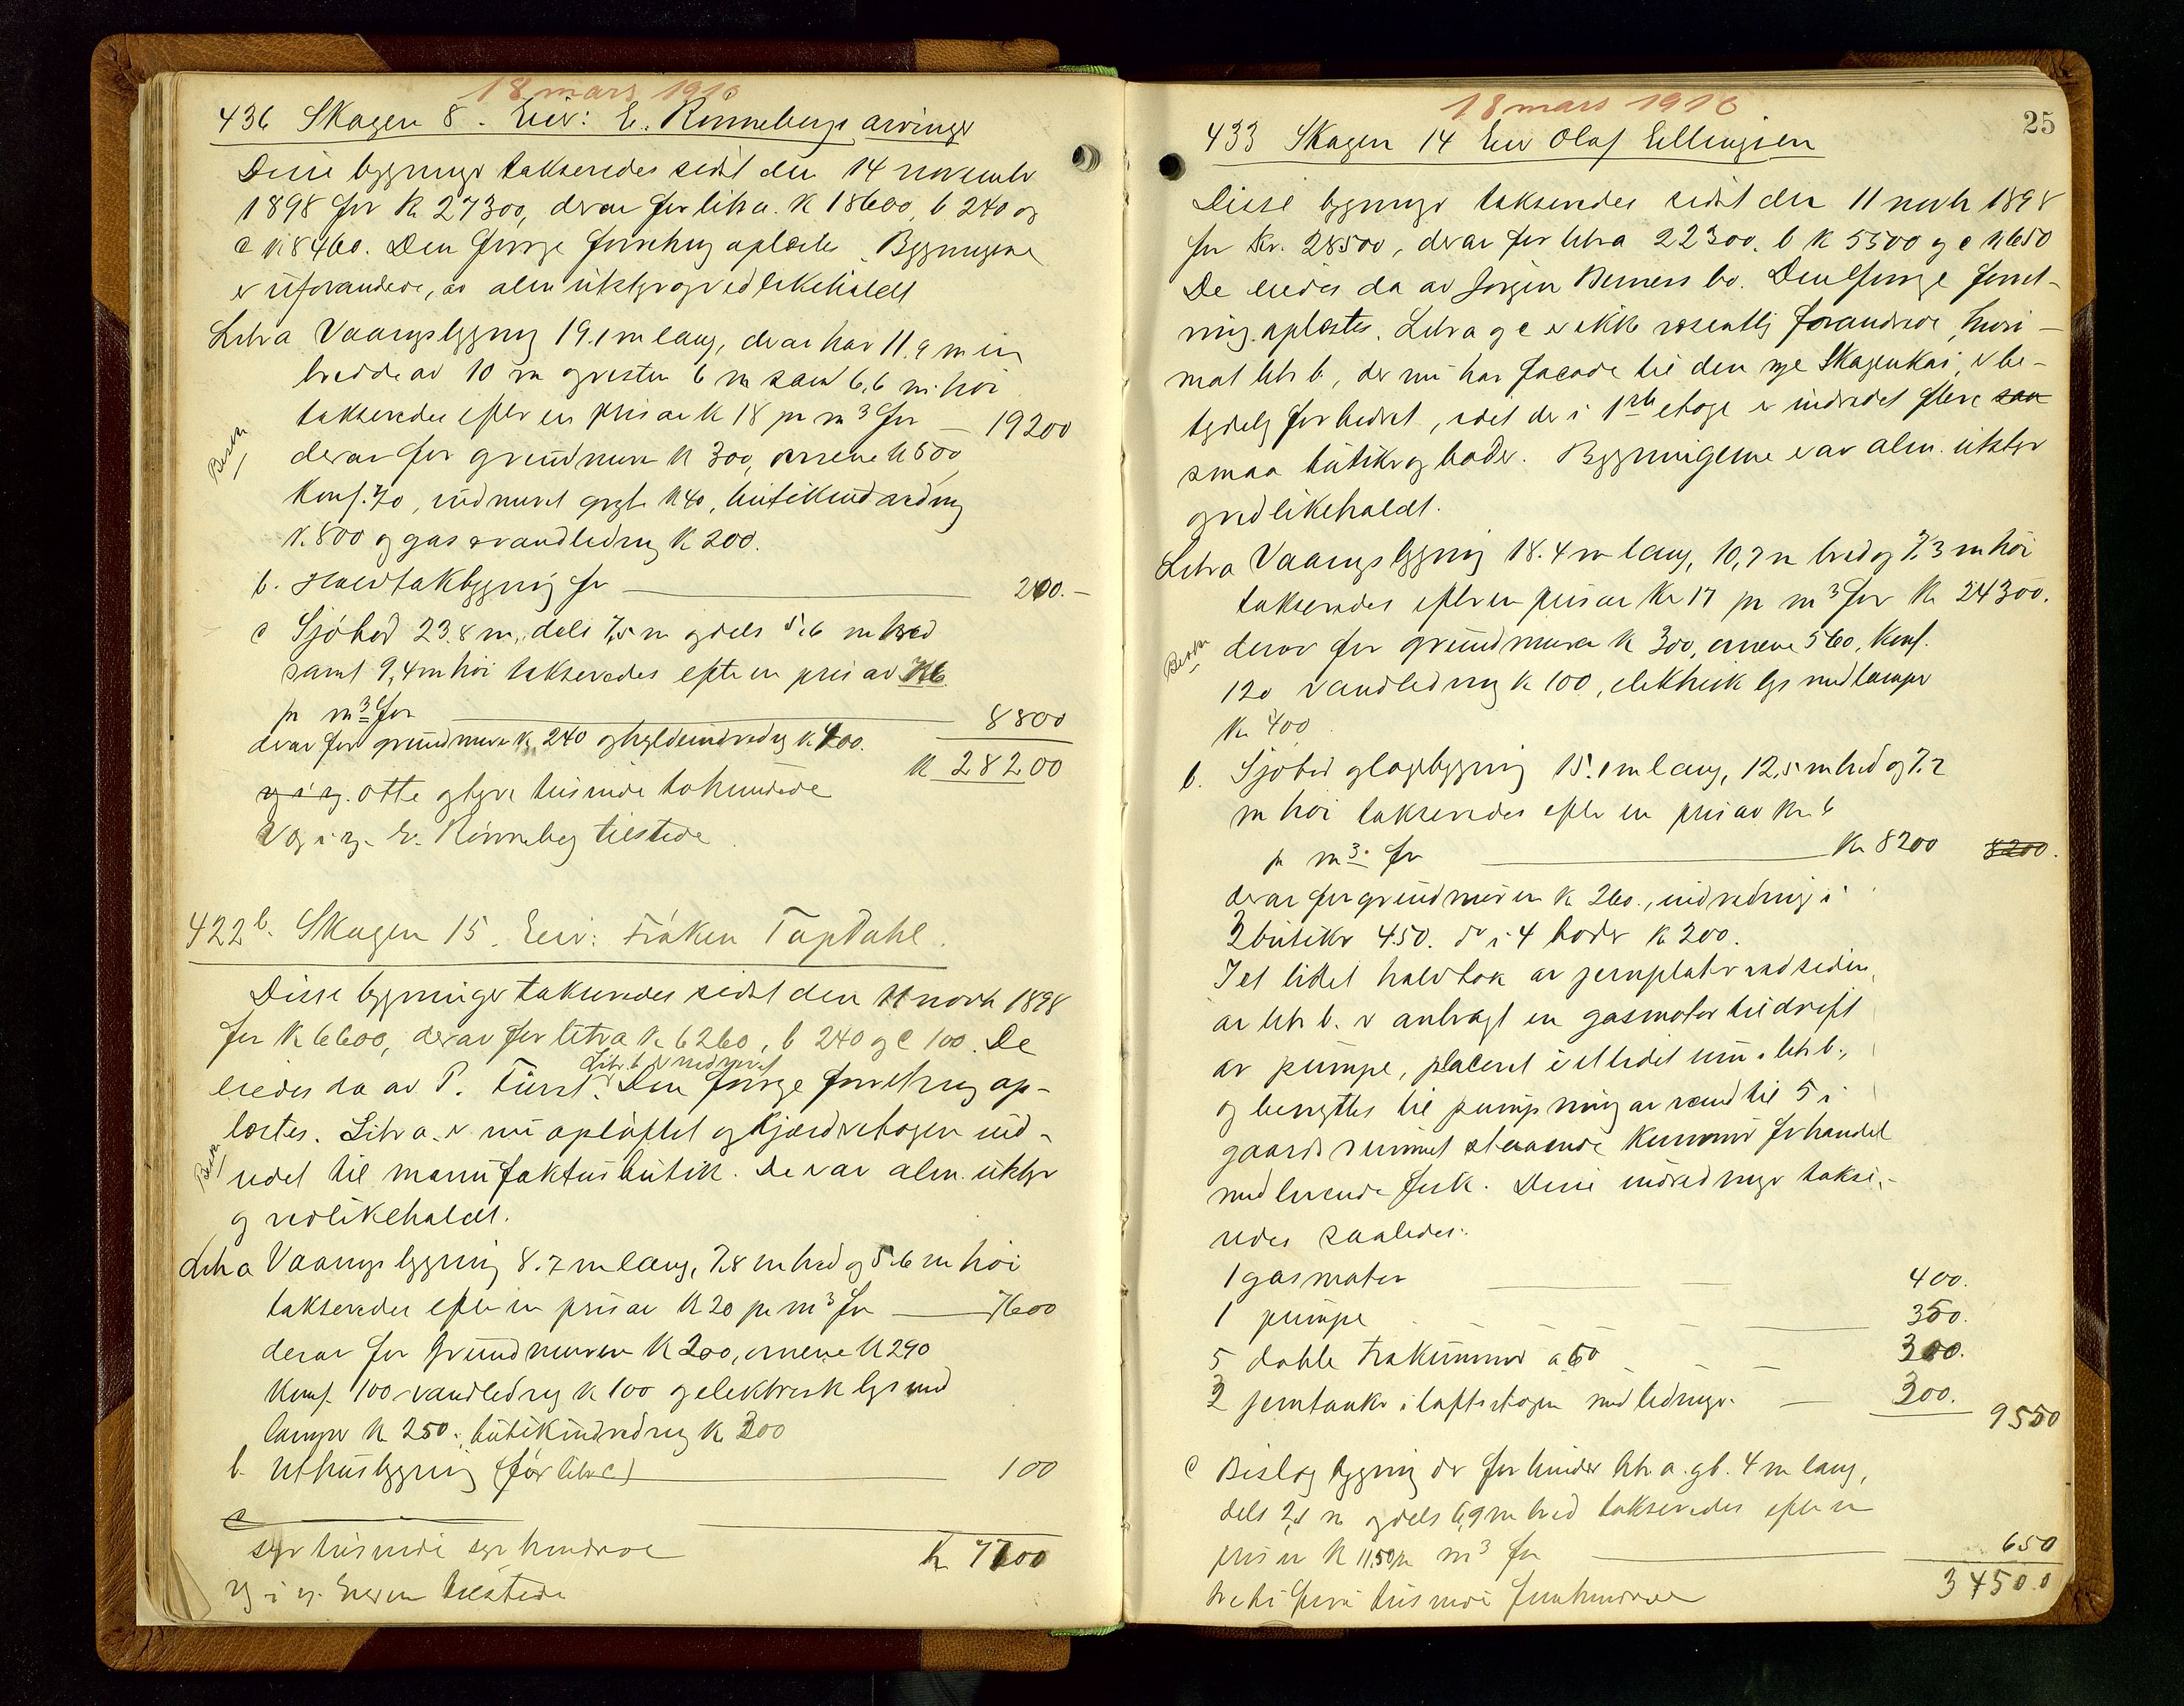 18 mars 1910
436 Skagen 8. Eier: E. Rønnebergs arvinger
Disse bygninger takseredes sidst den 14 novembr
1898 for K 27300, derav for litr a. K 18600, b 240 og
c K 8460. Den forrige forretning oplæstes. Bygningene
er uforandrede, av alm utstyr og vedlikeholdt
Litr a Vaaningsbygning 19.1 m lang, derav har 11.9 m en
bredde av 10 m og resten 6 m samt 6,6 m høi
takseredes efter en pris av K 18 pr m3 for — 19200
Besen
derav for grundmuren K 300, ovnene K 500
Komf. 70, indmuret gryte K 40, butikindredning
K. 800 og gas & vandledning K 200.
b. Halvtakbygning for — 200.-
c Sjöbod 23.8 m, dels 7,5 m og dels 5.6 m bred
samt 9,4 m høi takseredes efter en pris av K 6
pr m3 for — 8800
derav for grundmuren K. 240 og hyldeindredng K 400.
K 28200
og i g. otte og tyve tusinde tohundrede
V og i g. E. Rönneberg tilstede
422 b. Skagen 15. Eier: Fröken Tap Dahl.
Disse bygninger takseredes sidst den 11 novbr 1898
for K 6600, derav for litr a K 6260, b 240 og c 100. De
Litr. b er nedrevet
eiedes da av P. Fürst. Den forrige forretning op-
læstes. Litr a. er nu opløftet og kjælderetagen ind-
redet til manufakturbutik. De er av alm. utstyr
og vedlikeholdt.
Litr a Vaaningsbygning 8.7 m lang, 7.8 m bred og 5.6 m høi
takseredes efter en pris av K 20 pr m3 for — 7600
derav for Grundmuren K 200, ovnene K 290
Komf. 100 vandledning K 100 og elektrisk lys med
lamper K 250. butikindredning K 300
b. Uthusbygning (før litr c) — 100
c
syv tusinde syv hundrede K 7700
og i g. Eieren tilstede
18 mars 1910
25
433 Skagen 14 Eier Olaf Ellingsen
Disse bygninger takseredes sidst den 11 novbr 1898
for Kr. 28500, derav for litr a 22300, b K 5500 og c K 650
De eiedes da av Jörgen Berners bo. Den forrige forret-
ning oplæstes. Litr a og c er ikke væsentlig forandrede, hvori-
mot litr b, der nu har facade til den nye Skagenkai, er be-
tydelig forbedret, idet der i 1ste etage er indredet flere saa
smaa butiker og boder. Bygningene er av alm. utstyr
og vedlikeholdt.
Litr a Vaaningsbygning 18.4 m lang, 10,7 m bred og 7.3 m høi
takseredes efter en pris av Kr 17 pr m3 for Kr 24300.
derav for grundmuren K 300, ovnene 560, Komf.
120 vandledning K 100, elektrisk lys med lamper
Kr 400
b. Sjöbod og lagerbygning 15.1 m lang, 12,5 m bred og 7.2
m høi takseredes efter en pris av Kr. 6
pr m3. for — Kr 8200 8200.
derav for grundmuren K 260., indredning i
3 butiker 450. do i 4 boder K 200.
I et litet halvtak av jernplater ved siden
av litr b. er anbragt en gasmotor til drift
av pumpe, placeret i et lidet rum i litr b.,
og benyttes til pumpning av vand til 5 i
gaardsrummet staaende Kummer for handel
med levende fisk. Disse indredninger takse-
redes saaledes:
1 gasmotor — 400.
1 pumpe — 350.
5 doble trækummer a 60 — 300.
2 jerntanker i loftsetagen med ledninger. — 300.
9550
c Bislagbygning der forbinder litr a. og b. 4 m lang,
dels 2,8 m og dels 6,9 m bred takseredes efter en
pris av K 11.50 pr m3 for — 650
34500
tretifire tusinde femhundrede